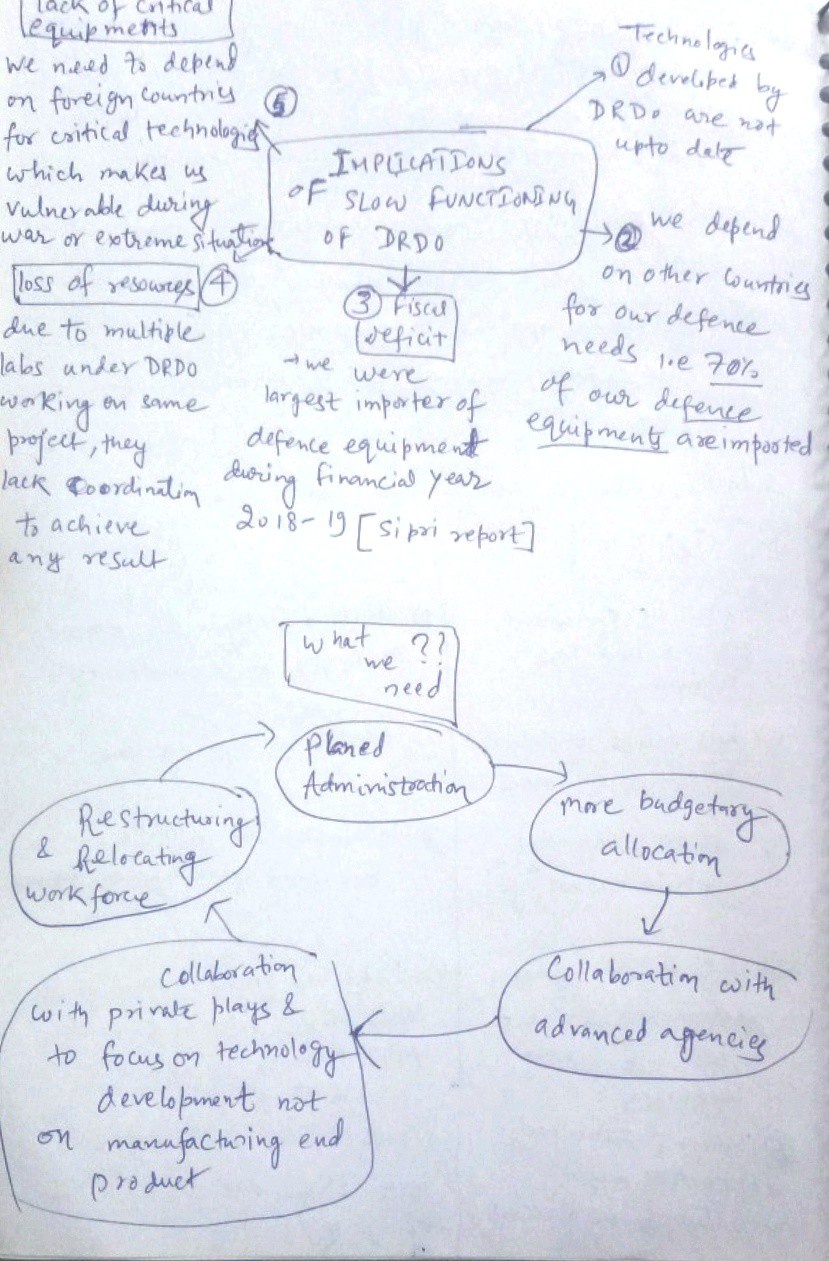 IMPLICATIONS
OF SLOW FUNCTIONING
OF DRDO
Technologies
① developed by
DRDO are not
upto date
② we depend
on other countries
for our defence
needs i.e 70%
of our defence
equipments are imported
③ Fiscal
deficit
→ we were
largest importer of
defence equipment
during financial year
2018-19 [Sipri report]
loss of resources ④
due to multiple
labs under DRDO
working on same
project, they
lack coordination
to achieve
any result
lack of critical
equipments
we need to depend
on foreign countries ⑤
for critical technologies
which makes us
vulnerable during
war or extreme situation
What ??
we
need
Planed
Administration
more budgetary
allocation
Collaboration with
advanced agencies
collaboration
with private plays &
to focus on technology
development not
on manufacturing end
product
Restructuring
& Relocating
workforce